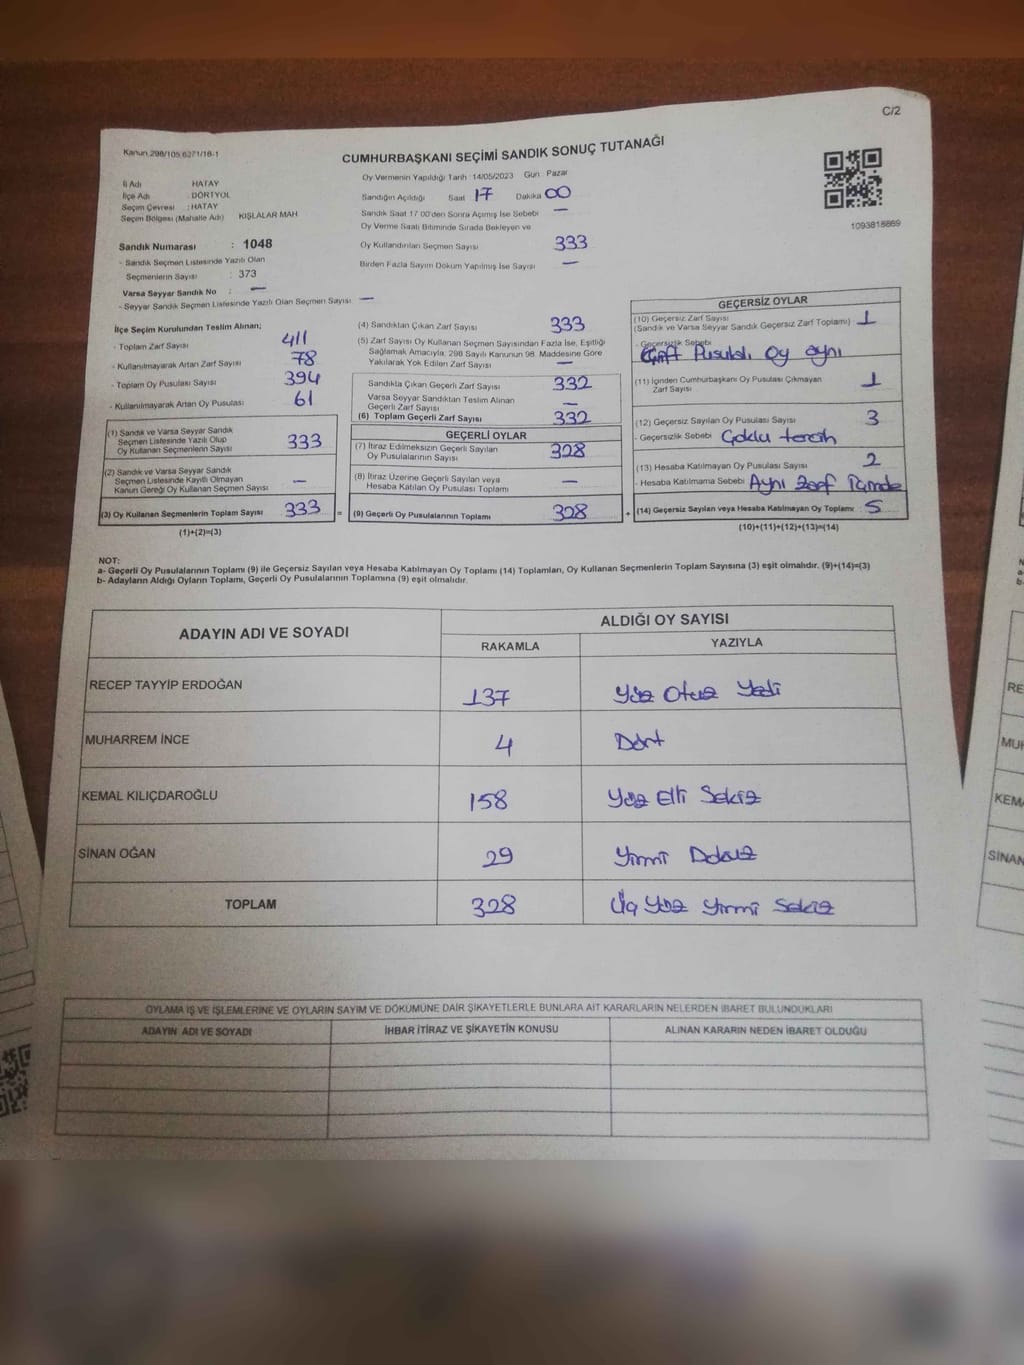 C/2
Kanun 298/105.6271/16-1
CUMHURBAŞKANI SEÇİMİ SANDIK SONUÇ TUTANAĞI
İl Adı HATAY
İlçe Adı : DÖRTYOL
Seçim Çevresi : HATAY
Seçim Bölgesi (Mahalle Adı) KIŞLALAR MAH
Sandık Numarası : 1048
- Sandık Seçmen Listesinde Yazılı Olan
Seçmenlerin Sayısı : 373
Varsa Seyyar Sandık No : —
- Seyyar Sandık Seçmen Listesinde Yazılı Olan Seçmen Sayısı —
Oy Vermenin Yapıldığı Tarih : 14/05/2023 Gün : Pazar
Sandığın Açıldığı Saat 17 Dakika 00
Sandık Saat 17:00'den Sonra Açımış İse Sebebi —
Oy Verme Saati Bitiminde Sırada Bekleyen ve
Oy Kullandırılan Seçmen Sayısı 333
Birden Fazla Sayım Döküm Yapılmış İse Sayısı —
1093818869
İlçe Seçim Kurulundan Teslim Alınan;
- Toplam Zarf Sayısı 411
- Kullanılmayarak Artan Zarf Sayısı 78
- Toplam Oy Pusulası Sayısı 394
- Kullanılmayarak Artan Oy Pusulası 61
(1) Sandık ve Varsa Seyyar Sandık
Seçmen Listesinde Yazılı Olup
Oy Kullanan Seçmenlerin Sayısı 333
(2) Sandık ve Varsa Seyyar Sandık
Seçmen Listesinde Kayıtlı Olmayan
Kanun Gereği Oy Kullanan Seçmen Sayısı —
(3) Oy Kullanan Seçmenlerin Toplam Sayısı 333 =
(1)+(2)=(3)
(4) Sandıktan Çıkan Zarf Sayısı 333
(5) Zarf Sayısı Oy Kullanan Seçmen Sayısından Fazla İse, Eşitliği
Sağlamak Amacıyla; 298 Sayılı Kanunun 98. Maddesine Göre
Yakılarak Yok Edilen Zarf Sayısı —
Sandıkta Çıkan Geçerli Zarf Sayısı 332
Varsa Seyyar Sandıktan Teslim Alınan
Geçerli Zarf Sayısı —
(6) Toplam Geçerli Zarf Sayısı 332
GEÇERLİ OYLAR
(7) İtiraz Edilmeksizin Geçerli Sayılan
Oy Pusulalarının Sayısı 328
(8) İtiraz Üzerine Geçerli Sayılan veya
Hesaba Katılan Oy Pusulası Toplamı —
(9) Geçerli Oy Pusulalarının Toplamı 328 +
GEÇERSİZ OYLAR
(10) Geçersiz Zarf Sayısı
(Sandık ve Varsa Seyyar Sandık Geçersiz Zarf Toplamı) 1
- Geçersizlik Sebebi
Çift Pusulalı Oy aynı
(11) İçinden Cumhurbaşkanı Oy Pusulası Çıkmayan
Zarf Sayısı 1
(12) Geçersiz Sayılan Oy Pusulası Sayısı 3
- Geçersizlik Sebebi Çoklu tercih
(13) Hesaba Katılmayan Oy Pusulası Sayısı 2
- Hesaba Katılmama Sebebi Aynı Zarf İçinde
(14) Geçersiz Sayılan veya Hesaba Katılmayan Oy Toplamı 5
(10)+(11)+(12)+(13)=(14)
NOT:
a- Geçerli Oy Pusulalarının Toplamı (9) ile Geçersiz Sayılan veya Hesaba Katılmayan Oy Toplamı (14) Toplamları, Oy Kullanan Seçmenlerin Toplam Sayısına (3) eşit olmalıdır. (9)+(14)=(3)
b- Adayların Aldığı Oyların Toplamı, Geçerli Oy Pusulalarının Toplamına (9) eşit olmalıdır.
ADAYIN ADI VE SOYADI ALDIĞI OY SAYISI
RAKAMLA YAZIYLA
RECEP TAYYİP ERDOĞAN 137 Yüz Otuz Yedi
MUHARREM İNCE 4 Dört
KEMAL KILIÇDAROĞLU 158 Yüz Elli Sekiz
SİNAN OĞAN 29 Yirmi Dokuz
TOPLAM 328 Üç Yüz Yirmi Sekiz
OYLAMA İŞ VE İŞLEMLERİNE VE OYLARIN SAYIM VE DÖKÜMÜNE DAİR ŞİKAYETLERLE BUNLARA AİT KARARLARIN NELERDEN İBARET BULUNDUKLARI
ADAYIN ADI VE SOYADI İHBAR İTİRAZ VE ŞİKAYETİN KONUSU ALINAN KARARIN NEDEN İBARET OLDUĞU